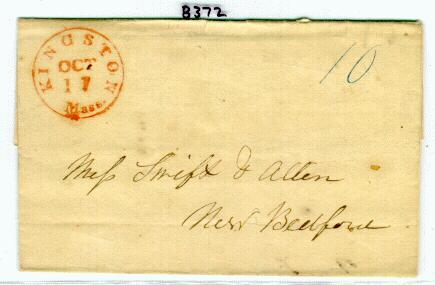 B372
KINGSTON
OCT
17
Mass.
10
Mess Swift & Allen
New Bedford